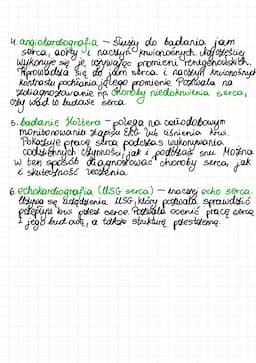 4. angiokardiografia – służy do badania jam
serca, aorty i naczyń krwionośnych. Najczęściej
wykonuje się je używając promieni rentgenowskich.
Wprowadza się do jam serca i naczyń krwionośnych
kontrastu pochłaniającego promienie. Pozwala na
zdiagnozowanie np. choroby niedokrwienia serca,
czy wad w budowie serca.
5. badanie Holtera – polega na całodobowym
monitorowaniu zapisu EKG lub ciśnienia krwi.
Pokazuje pracę serca podczas wykonywania
codziennych czynności, jak i podczas snu. Można
w ten sposób diagnozować choroby serca, jak
i skuteczność leczenia.
6. echokardiografia (USG serca) – inaczej echo serca.
Używa się urządzenia USG, który pozwala sprawdzić
przepływ krwi przez serce. Pozwala ocenić pracę serca
i jego budowę, a także strukturę przestrzenną.